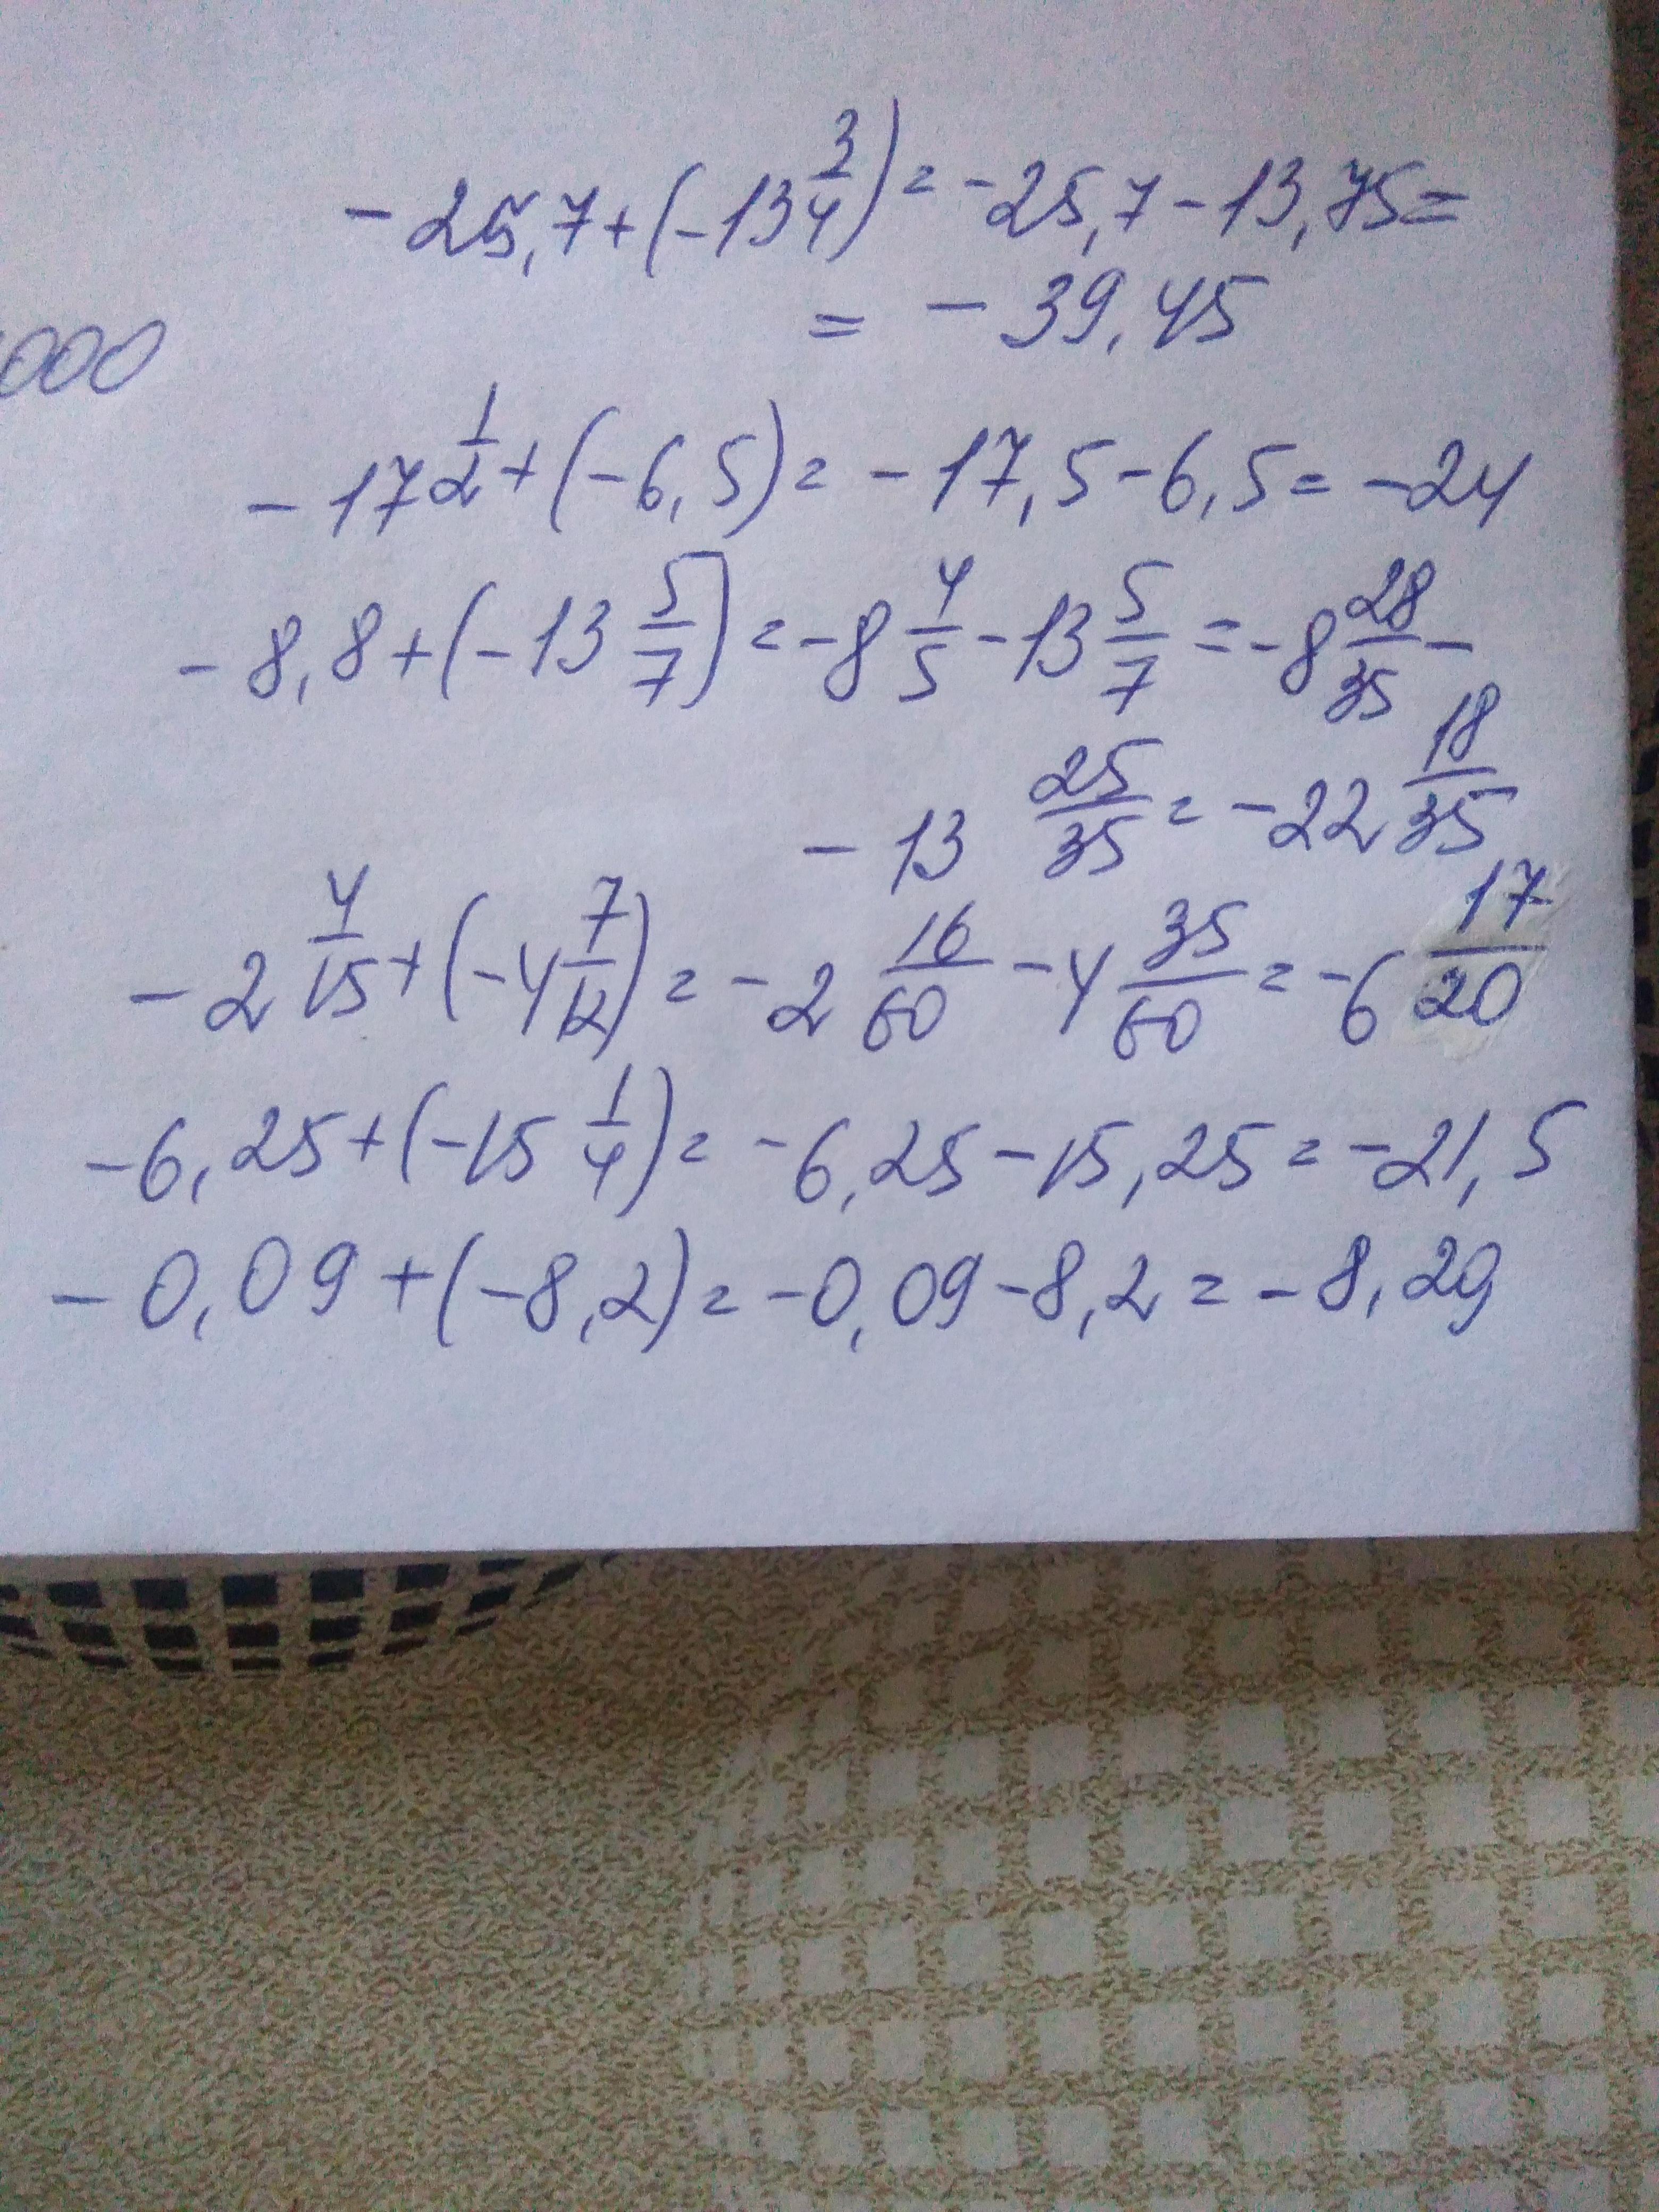 -25,7+(-13 3/4)=-25,7-13,75=
=-39,45
000
-17 1/2+(-6,5)=-17,5-6,5=-24
-8,8+(-13 5/7)=-8 4/5-13 5/7=-8 28/35-
-13 25/35=-22 18/35
-2 4/15+(-4 7/12)=-2 16/60-4 35/60=-6 17/20
-6,25+(-15 1/4)=-6,25-15,25=-21,5
-0,09+(-8,2)=-0,09-8,2=-8,29